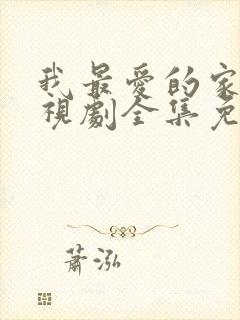 我最愛的家
視劇全集免
蕭泓